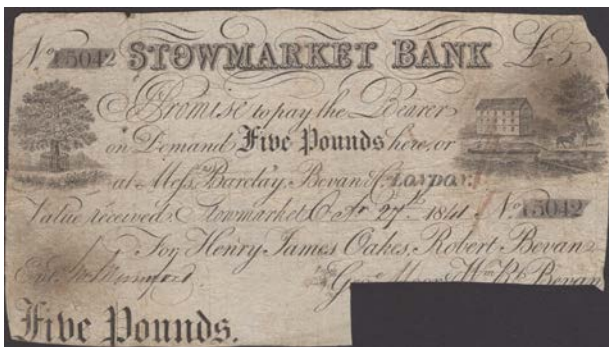 No 15042 STOWMARKET BANK £5
I Promise to pay the Bearer
on Demand Five Pounds here, or
at Messrs Barclay, Bevan & Co LONDON.
Value received. Stowmarket 27th 1841 No 15042
For Henry James Oakes, Robert Bevan
Entd
Geo. Moor & Wm Rt Bevan
Five Pounds.